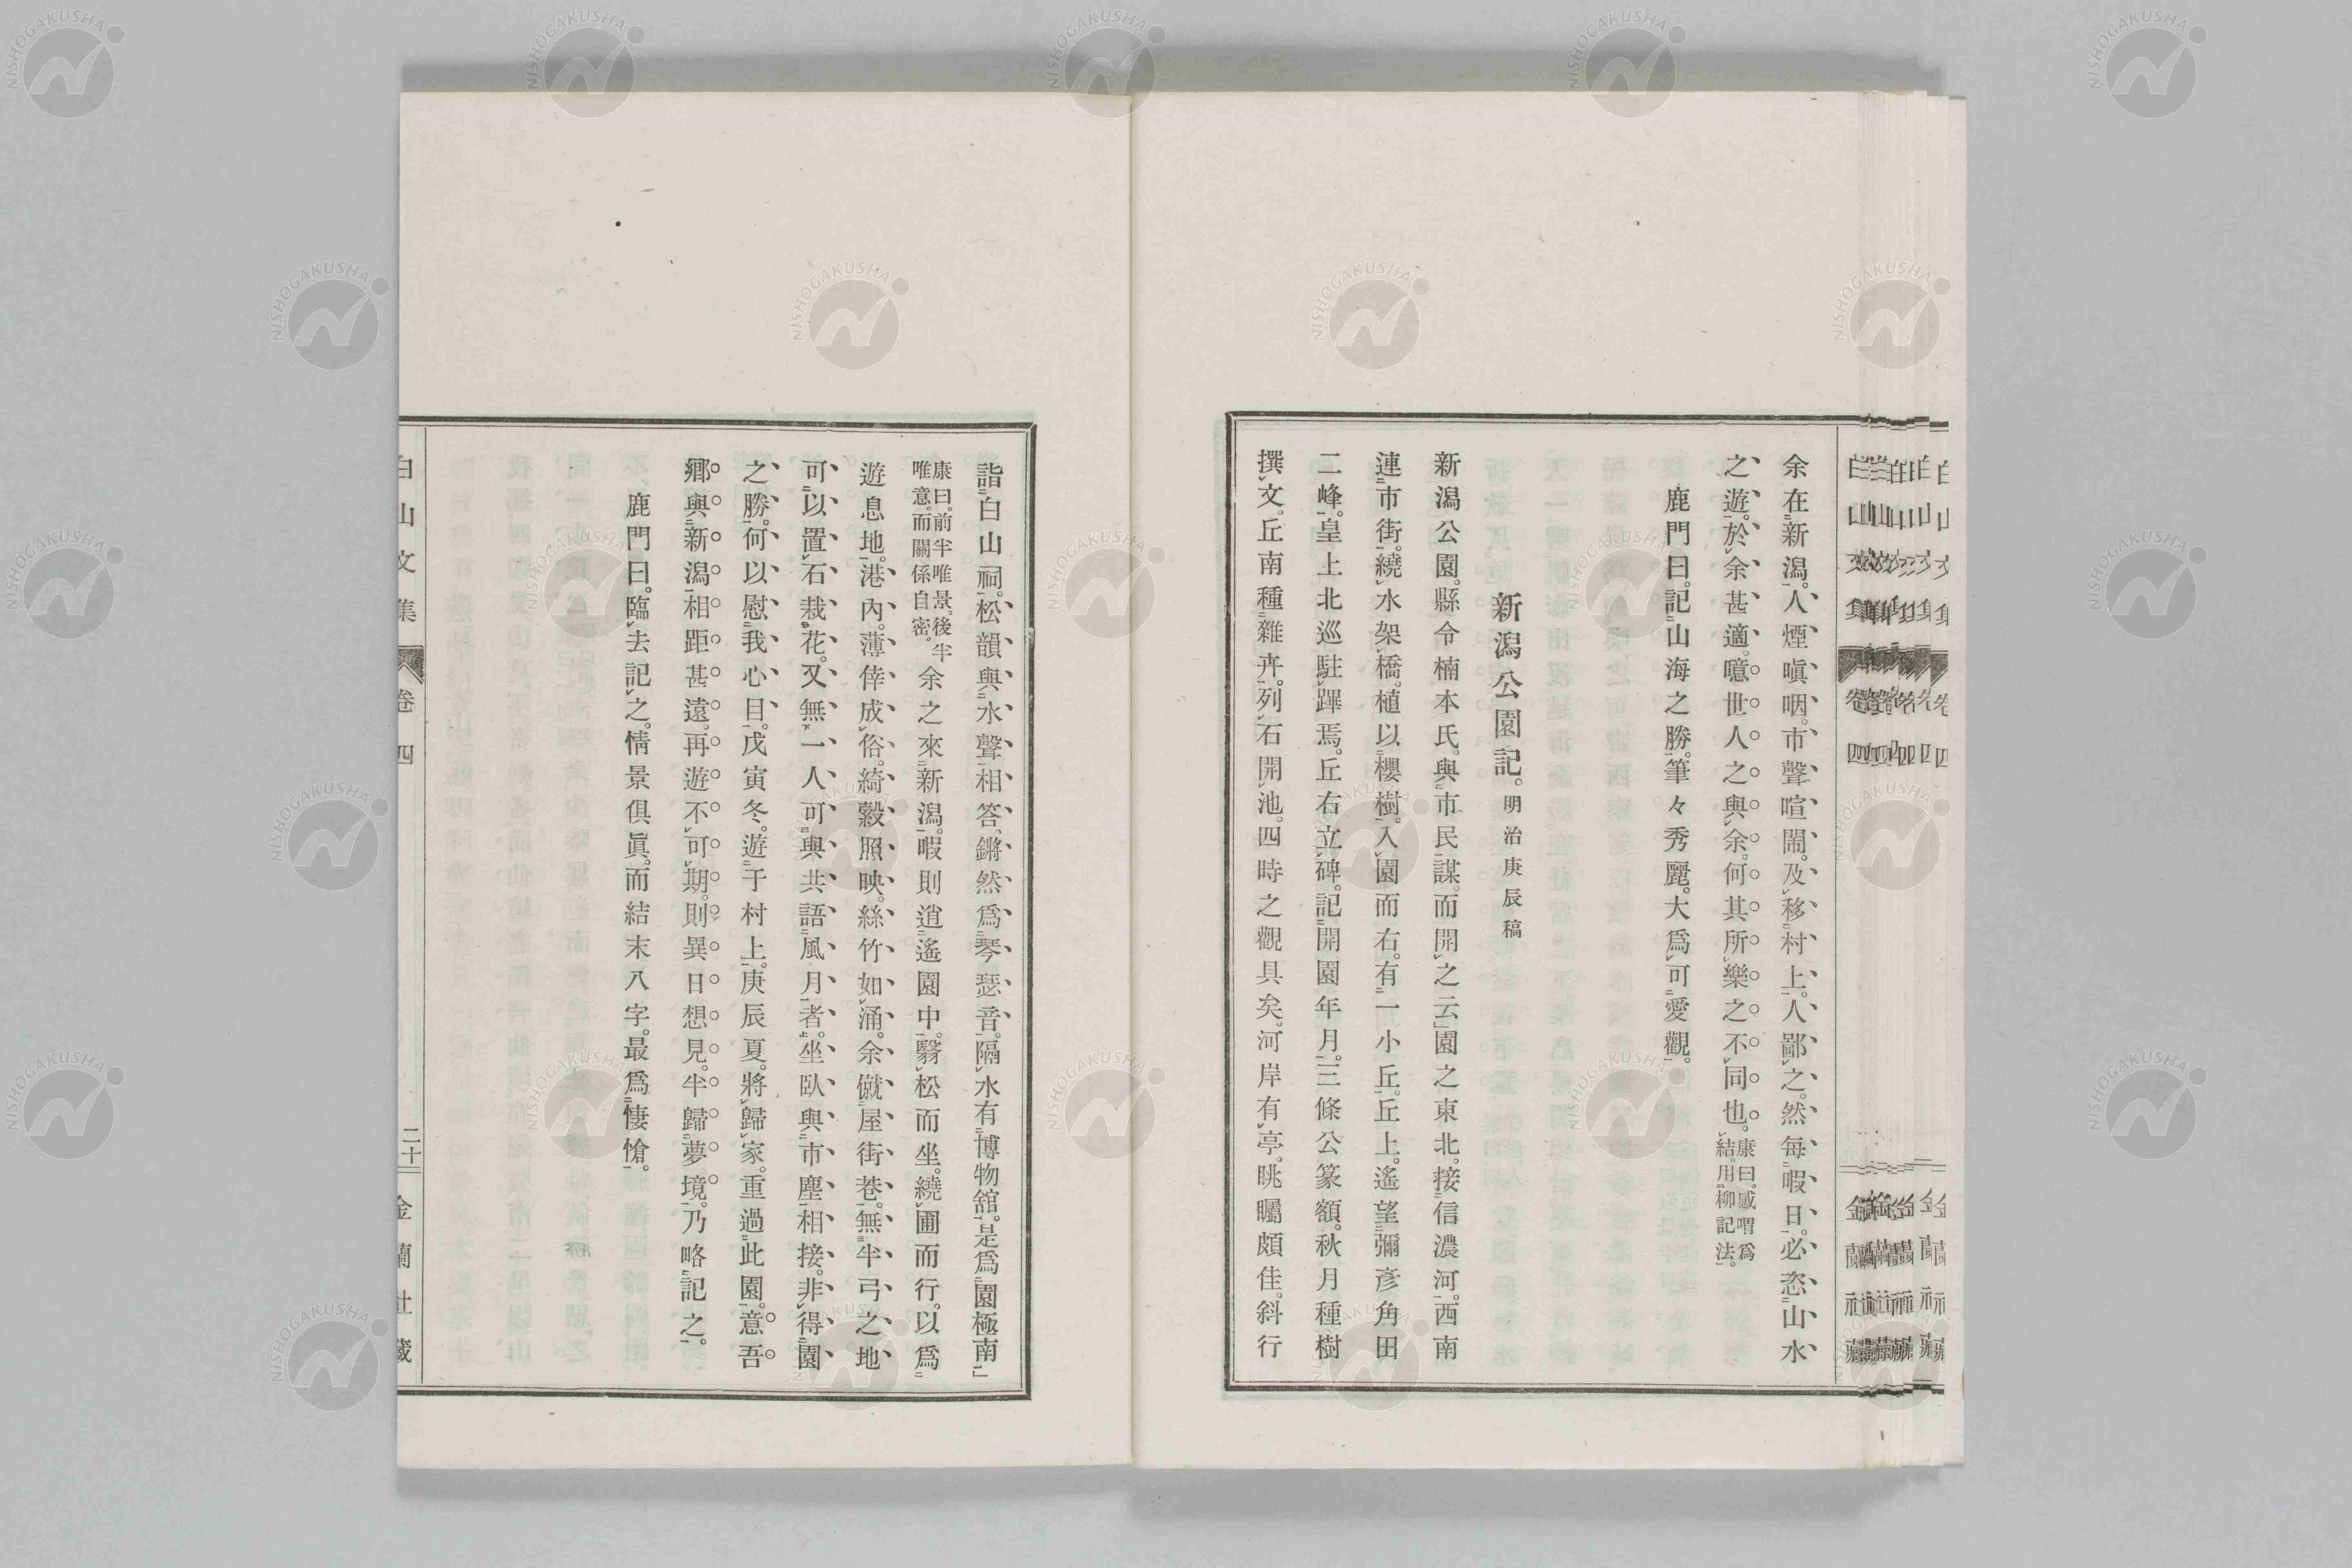 余在新潟。人煙嗔咽。市聲喧鬧。及移村上。人鄙之。然每暇日。必恣山水
之遊。於余甚適。噫世人之與余。何其所樂之不同也。康曰。感喟爲結。用柳記法。
鹿門曰。記山海之勝。筆々秀麗。大爲可愛觀。
新潟公園記。明治庚辰稿
新潟公園。縣令楠本氏。與市民謀。而開之云」園之東北。接信濃河。西南
連市街。繞水架橋。植以櫻樹。入園而右。有一小丘。丘上。遙望彌彥角田
二峰。皇上北巡駐蹕焉。丘右立碑。記開園年月。三條公篆額。秋月種樹
撰文。丘南種雜卉。列石開池。四時之觀具矣。河岸有亭。眺矚頗佳。斜行
詣白山祠。松韻與水聲相答。鏘然爲琴瑟音。隔水有博物舘。是爲園極南」
康曰。前半唯景。後半唯意。而關係自密。余之來新潟。暇則逍遙園中。翳松而坐。繞圃而行。以爲
遊息地。港內。薄倖成俗。綺縠照映。絲竹如涌。余僦屋街巷。無半弓之地
可以置石栽花。又無一人可與共語風月者。坐臥與市塵相接。非得園
之勝。何以慰我心目。戊寅冬。遊于村上。庚辰夏。將歸家。重過此園。意吾
鄉與新潟相距甚遠。再遊不可期。則異日想見。半歸夢境。乃略記之。
鹿門曰。臨去記之。情景俱眞。而結末八字。最爲悽愴。
白山文集
卷四
二十
金蘭社藏
NISHOGAKUSHA